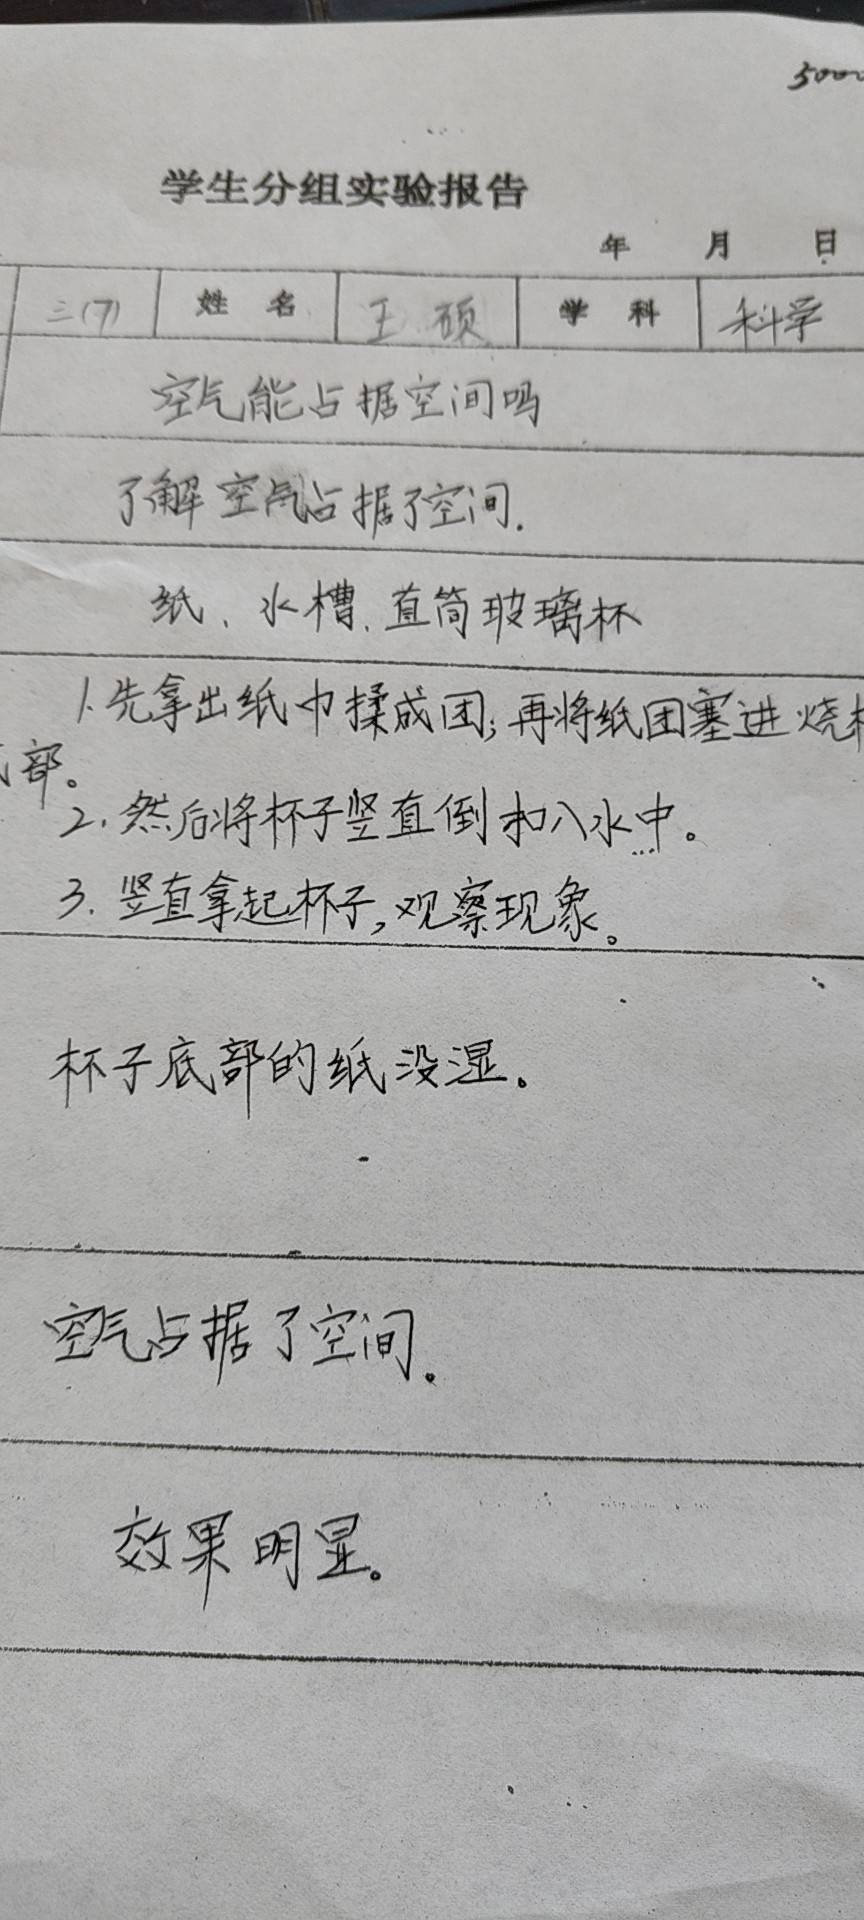 5000
学生分组实验报告
年 月 日
三(7) 姓 名 王硕 学 科 科学
空气能占据空间吗
了解空气占据了空间.
纸、水槽、直筒玻璃杯
1.先拿出纸巾揉成团;再将纸团塞进烧杯
部。
2.然后将杯子竖直倒扣入水中。
3.竖直拿起杯子,观察现象。
杯子底部的纸没湿。
空气占据了空间.
效果明显。